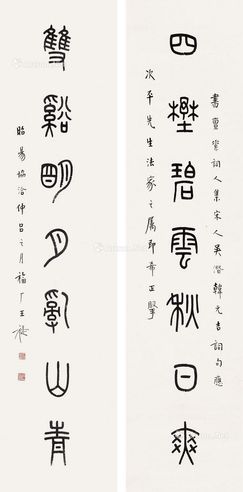 書彊邨詞人集宋人吳潛韓元吉詞句應
四壄碧雲秋日爽
次平先生法家之屬即希正
雙谿明月亂山青
昭陽協洽仲呂之月福厂王禔